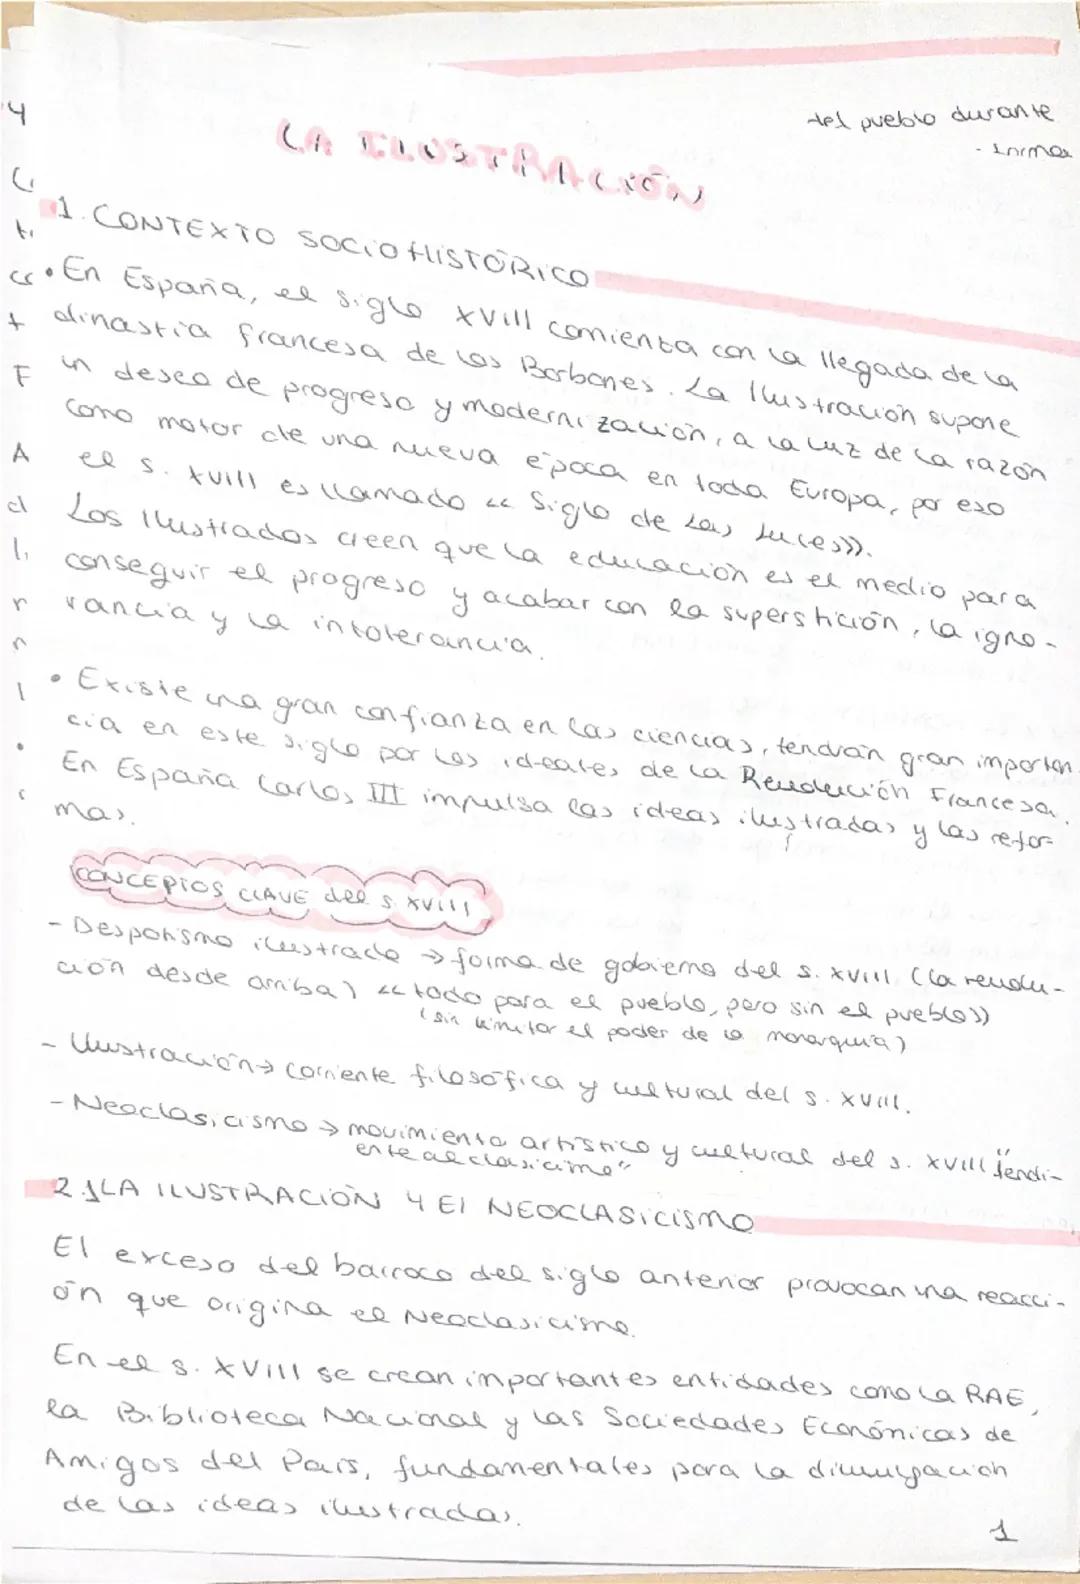 del pueblo durante
LA ILUSTRACIÓN
1. CONTEXTO SOCIOHISTÓRICO
• En España, el siglo XVIII comienza con la llegada de la
dinastía francesa de los Borbones. La Ilustración supone
un deseo de progreso y modernización, a la luz de la razón
como motor de una nueva época en toda Europa, por eso
el s. XVIII es llamado «Siglo de las luces».
Los Ilustrados creen que la educación es el medio para
conseguir el progreso y acabar con la superstición, la igno-
rancia y la intolerancia.
• Existe una gran confianza en las ciencias, tendrán gran importan
cia en este siglo por los ideales de la Revolución Francesa.
En España Carlos III impulsa las ideas ilustradas y las refor-
mas.
CONCEPTOS CLAVE del s. XVIII
- Despotismo ilustrado → forma de gobierno del s. XVIII (la revolu-
ción desde arriba) «todo para el pueblo, pero sin el pueblo»
(sin limitar el poder de la monarquía)
- Ilustración → corriente filosófica y cultural del s. XVIII.
- Neoclasicismo → movimiento artístico y cultural del s. XVIII "tendi-
ente al clasicismo"
2. LA ILUSTRACIÓN Y El NEOCLASICISMO
El exceso del barroco del siglo anterior provocan una reacci-
ón que origina el Neoclasicismo.
En el s. XVIII se crean importantes entidades como la RAE,
la Biblioteca Nacional y las Sociedades Económicas de
Amigos del País, fundamentales para la divulgación
de las ideas ilustradas.
1